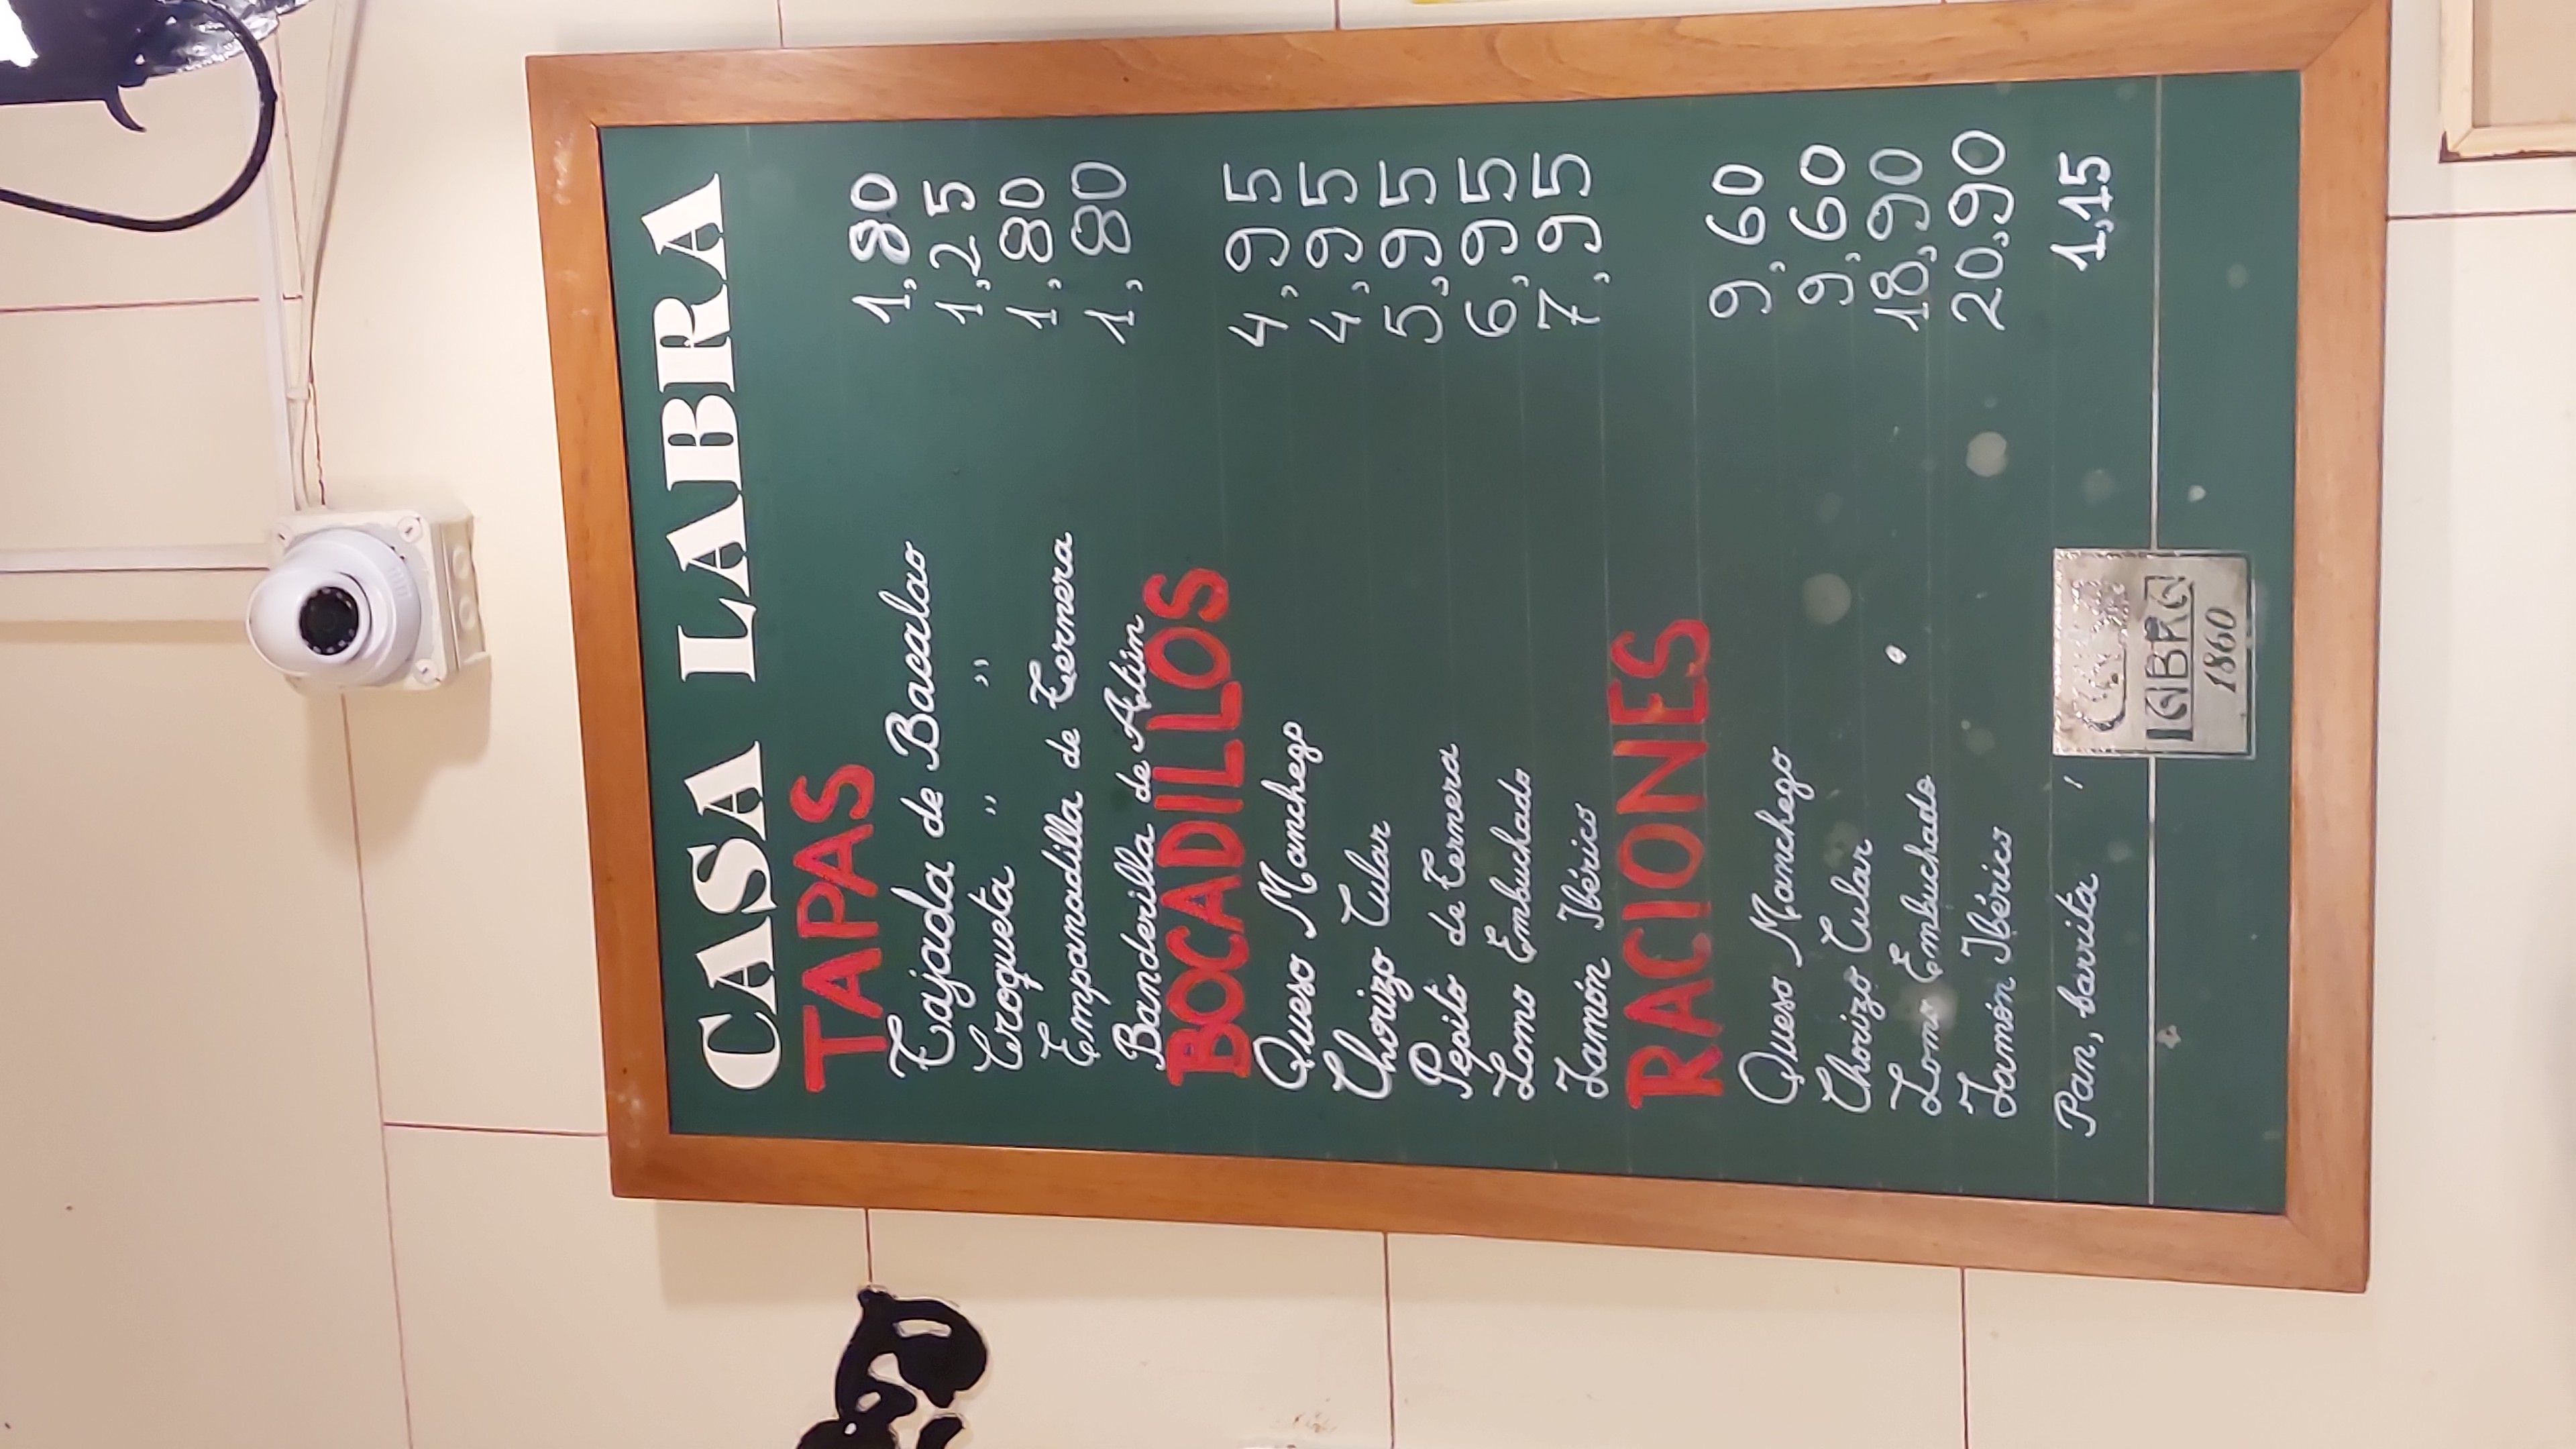 CASA LABRA
TAPAS
Tajada de Bacalao 1,80
Croqueta " " 1,25
Empanadilla de Ternera 1,80
Banderilla de Atún 1,80
BOCADILLOS
Queso Manchego 4,95
Chorizo Cular 4,95
Pepito de Ternera 5,95
Lomo Embuchado 6,95
Jamón Ibérico 7,95
RACIONES
Queso Manchego 9,60
Chorizo Cular 9,60
Lomo Embuchado 18,90
Jamón Ibérico 20,90
Pan, barrita 1,15
CASA
LABRA
1860